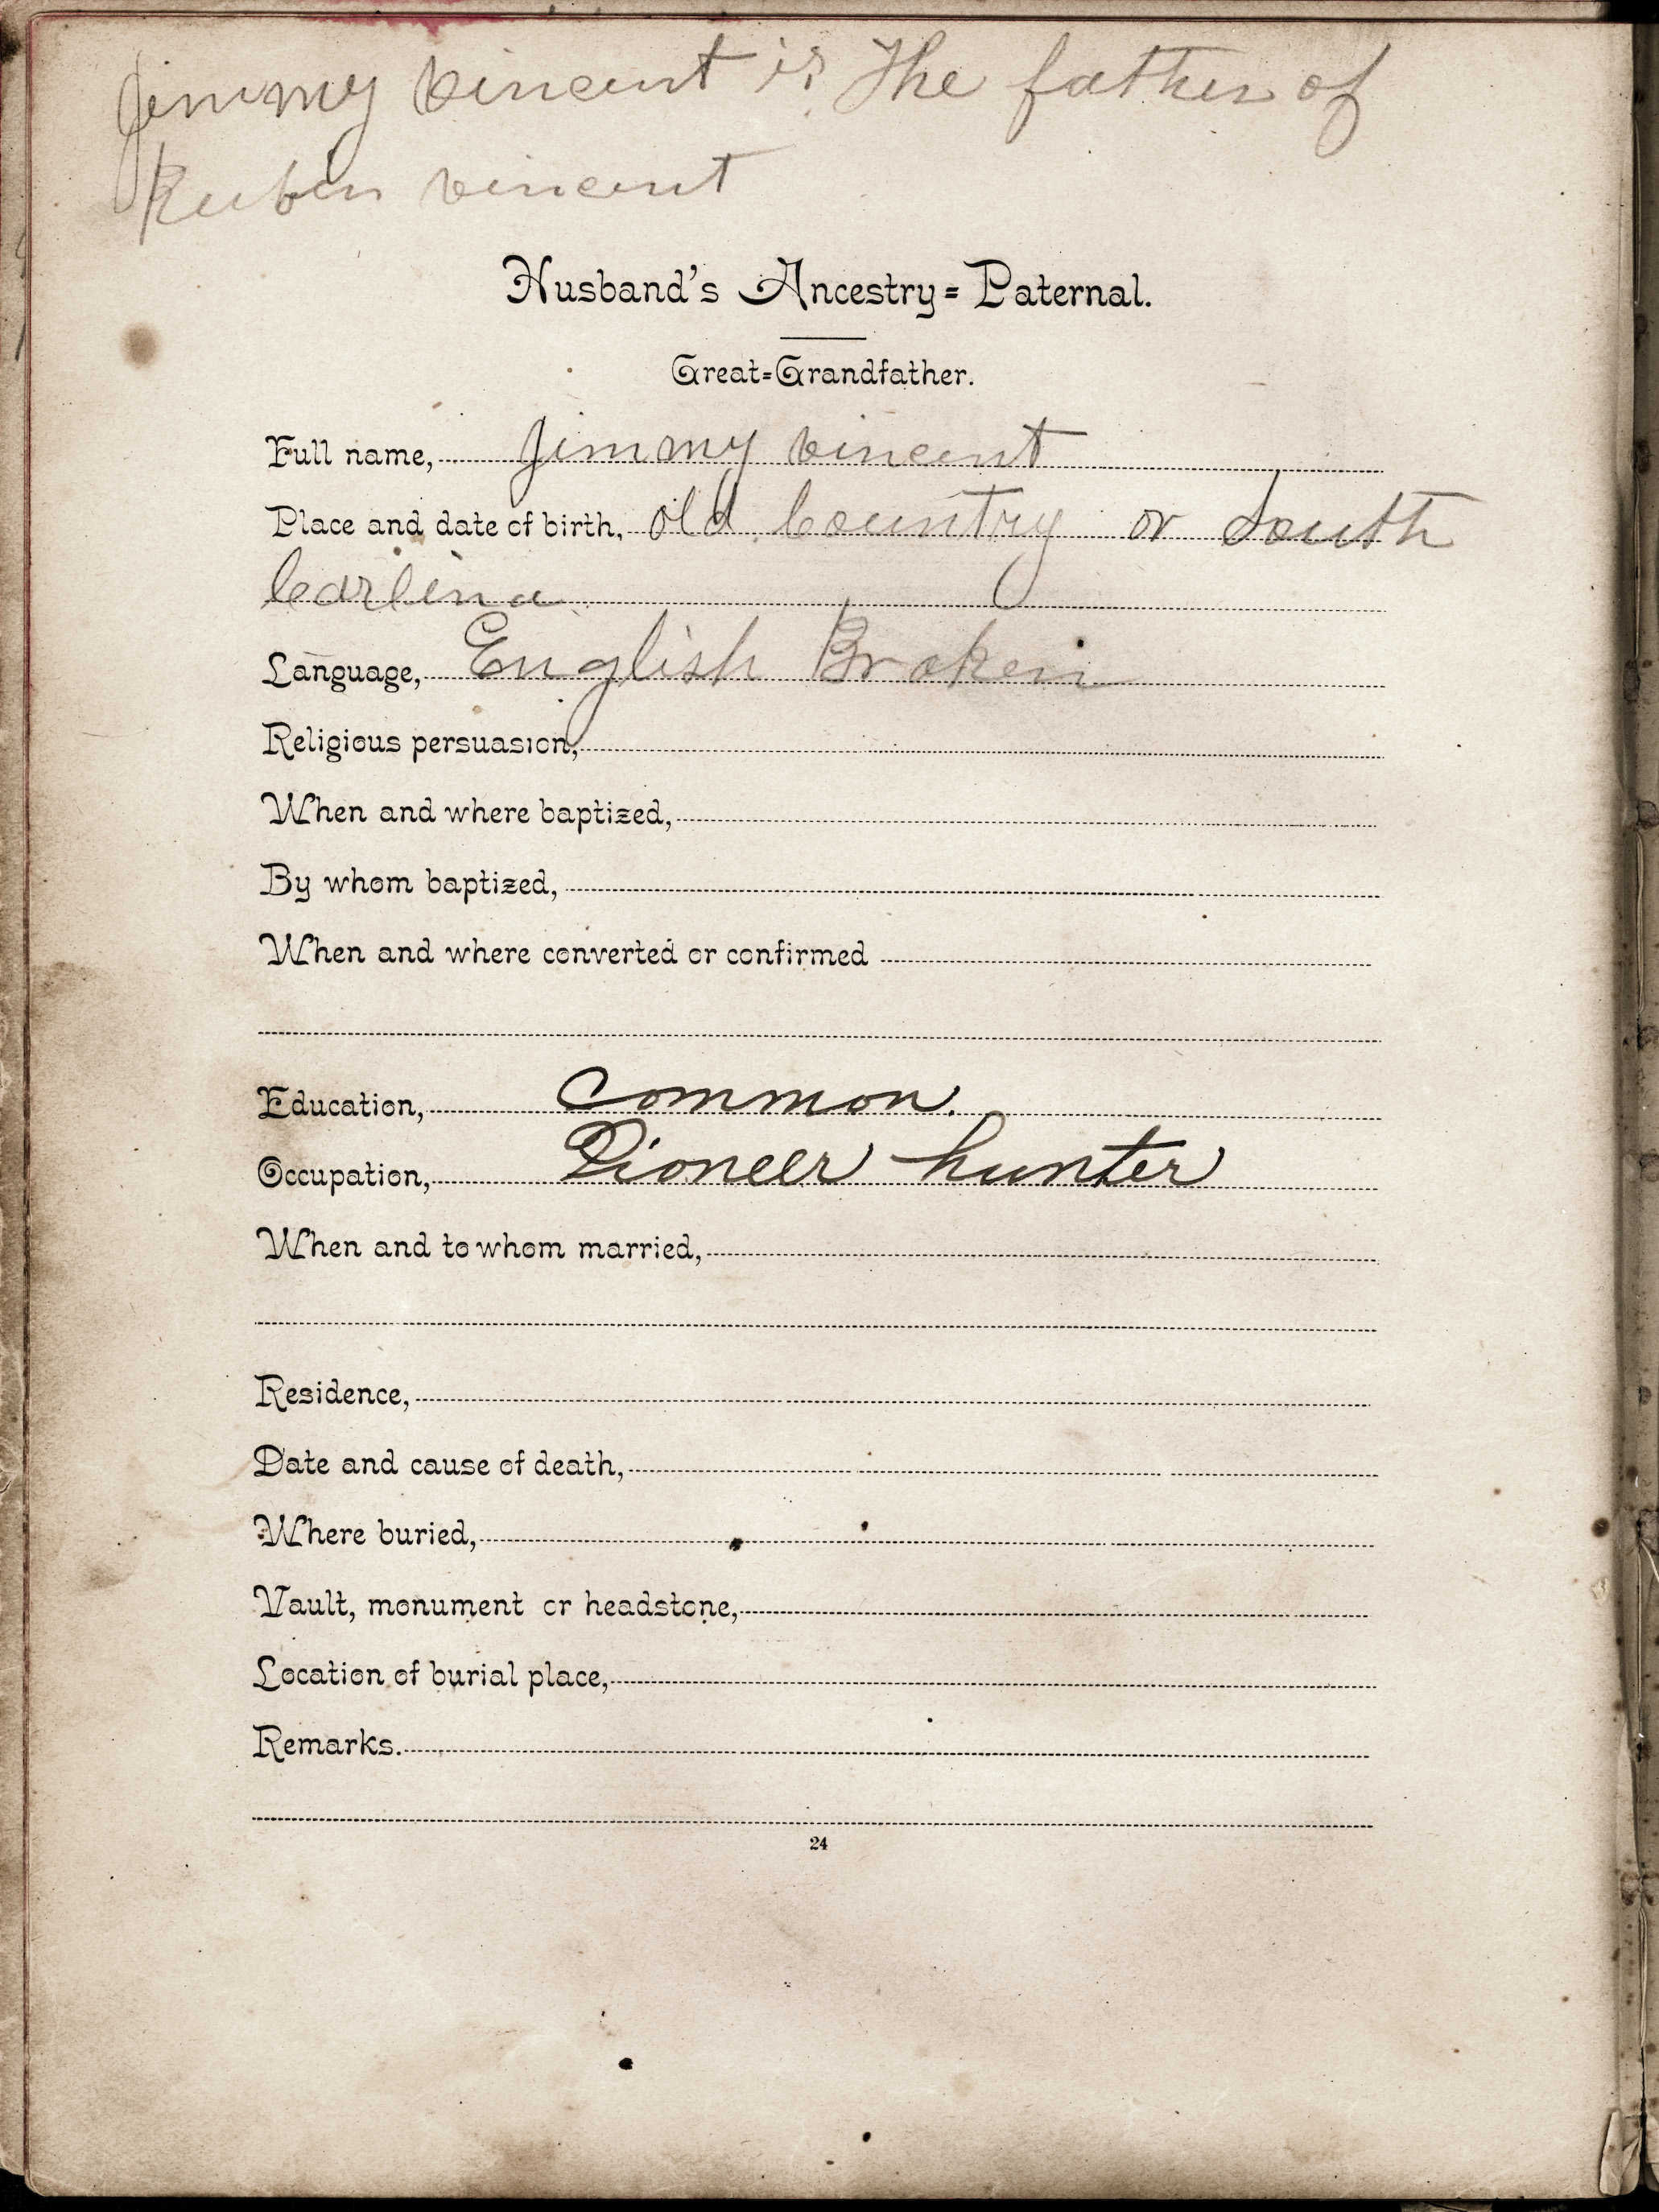 Jimmy Vincent is The father of
Rubin Vincent
Husband's Ancestry=Paternal.
Great=Grandfather.
Full name, Jimmy Vincent
Place and date of birth, old Country or South
Carlina
Language, English Broken
Religious persuasion,
When and where baptized,
By whom baptized,
When and where converted or confirmed
Education, Common.
Occupation, Pioneer hunter
When and to whom married,
Residence,
Date and cause of death,
Where buried,
Vault, monument or headstone,
Location of burial place,
Remarks.
24